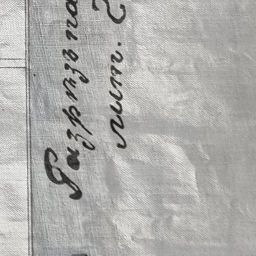 Разрѣзъ по
лит.